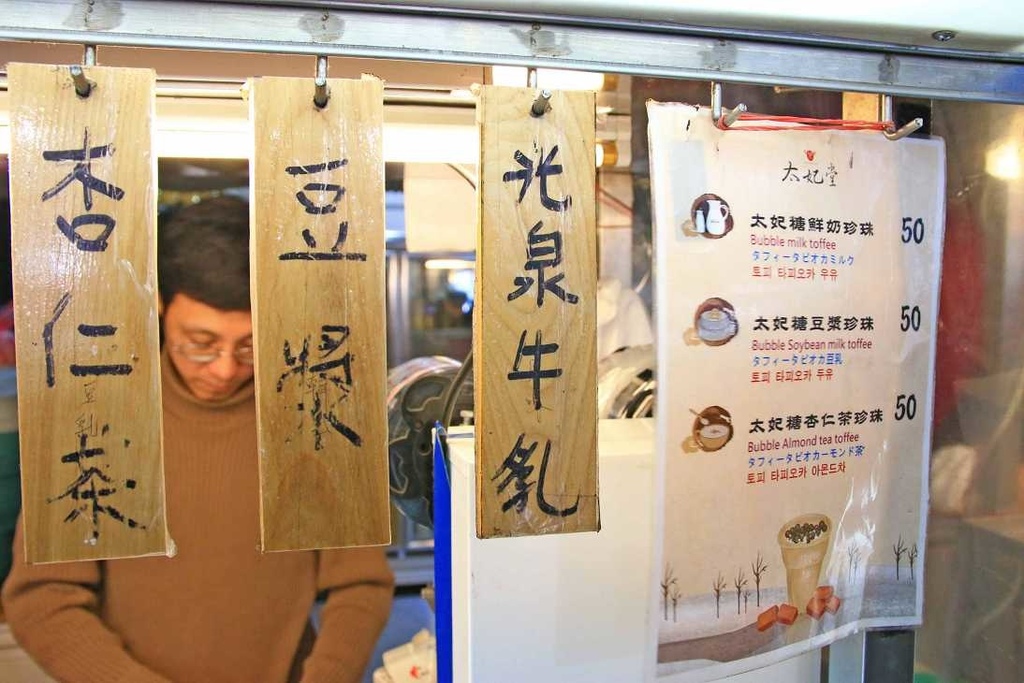 杏仁茶
豆乳
豆漿
光泉牛乳
太妃堂
太妃糖鮮奶珍珠 50
Bubble milk toffee
タフィータピオカミルク
토피 타피오카 우유
太妃糖豆漿珍珠 50
Bubble Soybean milk toffee
タフィータピオカ豆乳
토피 타피오카 두유
太妃糖杏仁茶珍珠 50
Bubble Almond tea toffee
タフィータピオカーモンド茶
토피 타피오카 아몬드차